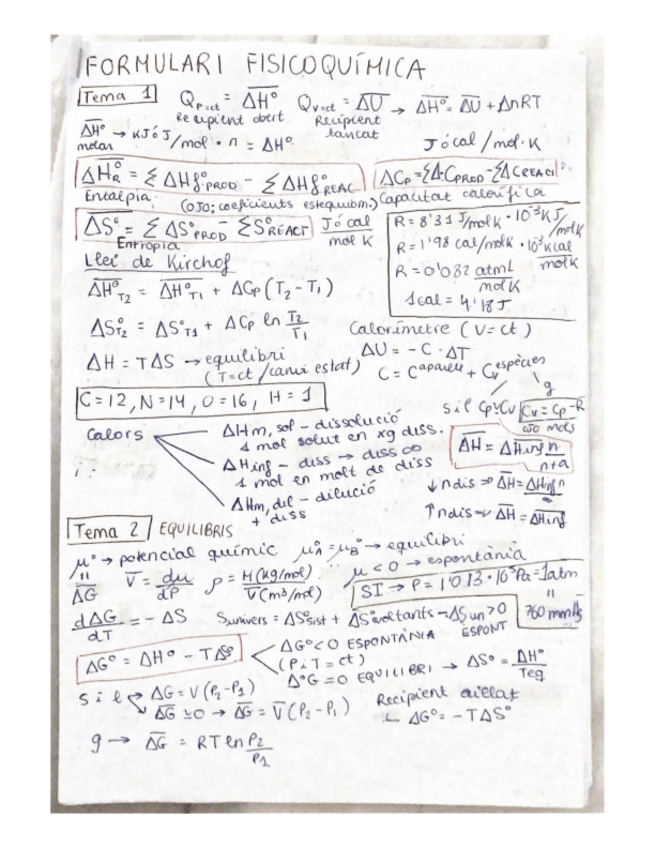 FORMULARI FISICOQUÍMICA
Tema 1 Q p=ct = ΔH° Q v=ct = ΔU → ΔH° = ΔU + ΔnRT
Recipient obert Recipient tancat
ΔH° molar → KJ ó J/mol · n = ΔH° J ó cal/mol·K
ΔH°R = Σ ΔHf°PROD - Σ ΔHf°REAC ΔCp = Σ Δ·CPROD - Σ ΔCREACT
Entalpia. (OJO; coeficients estequiom.) Capacitat calorífica
ΔS° = Σ ΔS°PROD - Σ S°REACT J ó cal / mol K
Entropia
R = 8'31 J/molK · 10⁻³ KJ/molK
R = 1'98 cal/molK · 10⁻³ Kcal/molK
R = 0'082 atm L/mol K
1 cal = 4'18 J
Llei de Kirchof
ΔH°T2 = ΔH°T1 + ΔCp (T2 - T1)
ΔS°T2 = ΔS°T1 + ΔCp ln T2/T1
Calorímetre (V=ct)
ΔH = TΔS → equilibri ΔU = -C · ΔT
(T=ct / canvi estat) C = C aparell + Cv espècies
C=12, N=14, O=16, H=1
s i l Cp≃Cv g Cv = Cp - R
ojo mols
Calors
ΔHm, sol - dissolució
1 mol solut en xg diss.
ΔHinf - diss → diss ∞
1 mol en molt de diss
ΔHm, dil - dilució
+ diss
ΔH = ΔHinf n/n+a
↓ ndis ⇒ ΔH = ΔHinf n/∞
↑ ndis ⇒ ΔH = ΔHinf
Tema 2 EQUILIBRIS
μ° → potencial químic μ°A = μ°B → equilibri
μ < 0 → espontània
ΔG V = dμ/dP ρ = M(kg/mol)/V(m³/mol)
SI → P = 1'013·10⁵Pa = 1atm = 760 mmHg
dΔG/dT = - ΔS Sunivers = ΔS°sist + ΔS°voltants → ΔSun > 0
ESPONT
ΔG° = ΔH° - TΔS°
ΔG° < 0 ESPONTÀNIA
(P i T = ct)
Δ°G = 0 EQUILIBRI → ΔS° = ΔH°/Teq
s i l ΔG = V(P2-P1)
ΔG ≃ 0 → ΔG = V (P2 - P1)
Recipient aïllat
ΔG° = -TΔS°
g → ΔG = RT ln P2/P1